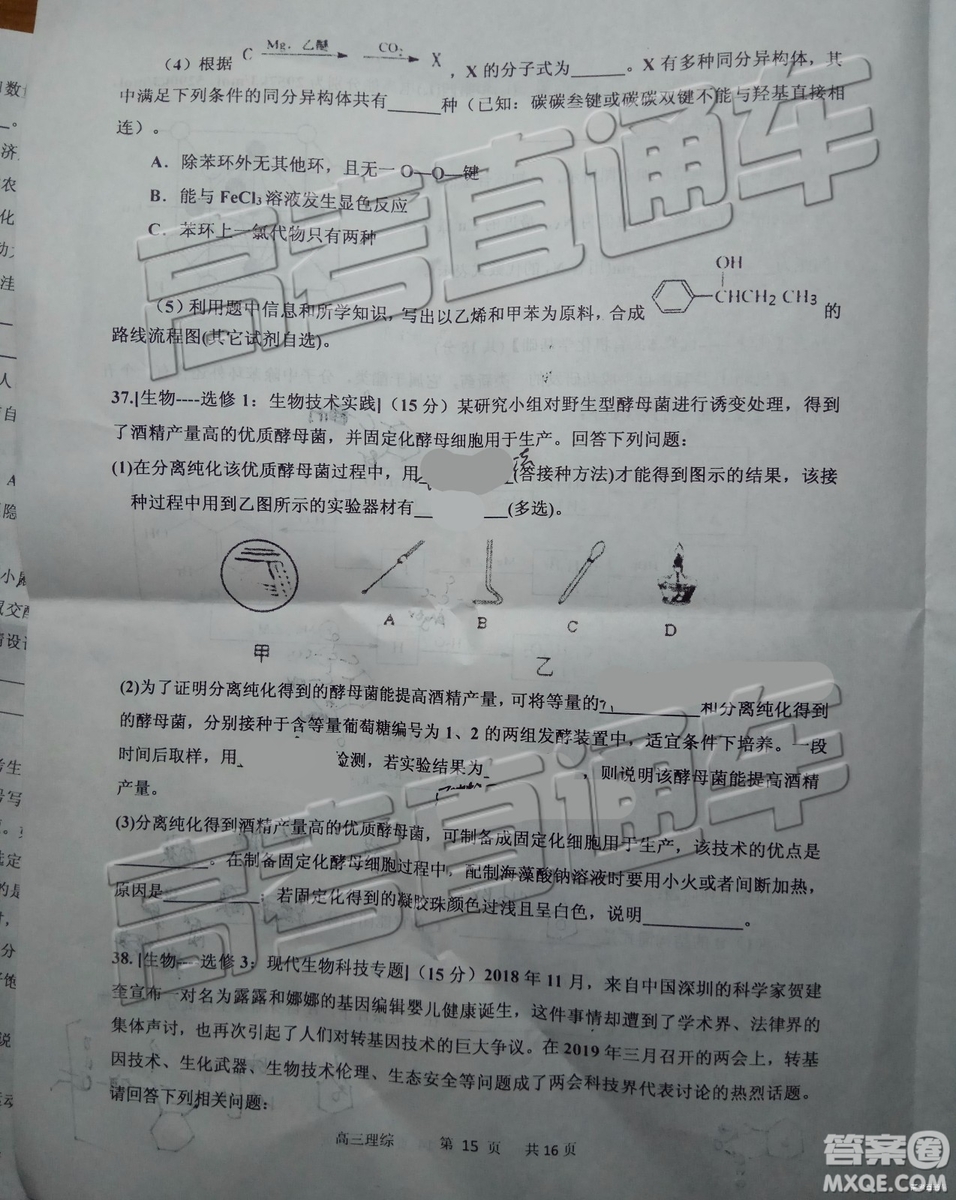 (4)根据 C Mg，乙醚 CO2 X ，X 的分子式为______。X 有多种同分异构体，其
中满足下列条件的同分异构体共有______种（已知：碳碳叁键或碳碳双键不能与羟基直接相
连）。
A．除苯环外无其他环，且无一 O—O—键
B．能与 FeCl3 溶液发生显色反应
C．苯环上一氯代物只有两种
OH
（5）利用题中信息和所学知识，写出以乙烯和甲苯为原料，合成 CHCH2 CH3 的
路线流程图(其它试剂自选)。
37.[生物----选修 1：生物技术实践]（15 分）某研究小组对野生型酵母菌进行诱变处理，得到
了酒精产量高的优质酵母菌，并固定化酵母细胞用于生产。回答下列问题：
(1)在分离纯化该优质酵母菌过程中，用 (答接种方法)才能得到图示的结果，该接
种过程中用到乙图所示的实验器材有 (多选)。
A B C D
甲 乙
(2)为了证明分离纯化得到的酵母菌能提高酒精产量，可将等量的 和分离纯化得到
的酵母菌，分别接种于含等量葡萄糖编号为 1、2 的两组发酵装置中，适宜条件下培养。一段
时间后取样，用 检测，若实验结果为 ，则说明该酵母菌能提高酒精
产量。
(3)分离纯化得到酒精产量高的优质酵母菌，可制备成固定化细胞用于生产，该技术的优点是
________。在制备固定化酵母细胞过程中，配制海藻酸钠溶液时要用小火或者间断加热，
原因是________；若固定化得到的凝胶珠颜色过浅且呈白色，说明________。
38. [生物---- 选修 3：现代生物科技专题]（15 分）2018 年 11 月，来自中国深圳的科学家贺建
奎宣布一对名为露露和娜娜的基因编辑婴儿健康诞生，这件事情却遭到了学术界、法律界的
集体声讨，也再次引起了人们对转基因技术的巨大争议。在 2019 年三月召开的两会上，转基
因技术、生化武器、生物技术伦理、生态安全等问题成了两会科技界代表讨论的热烈话题。
请回答下列相关问题：
高三理综 第 15 页 共 16 页
高考直通车
高考直通车
答案圈
MXQE.COM